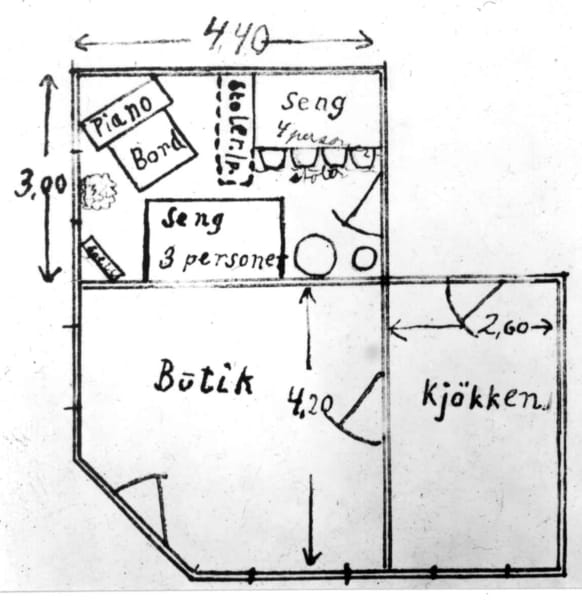 4,40
Piano
Bord
Seng
4 person
stoler
3,00
Seng
3 personer
Butik
4,20
2,60
Kjökken